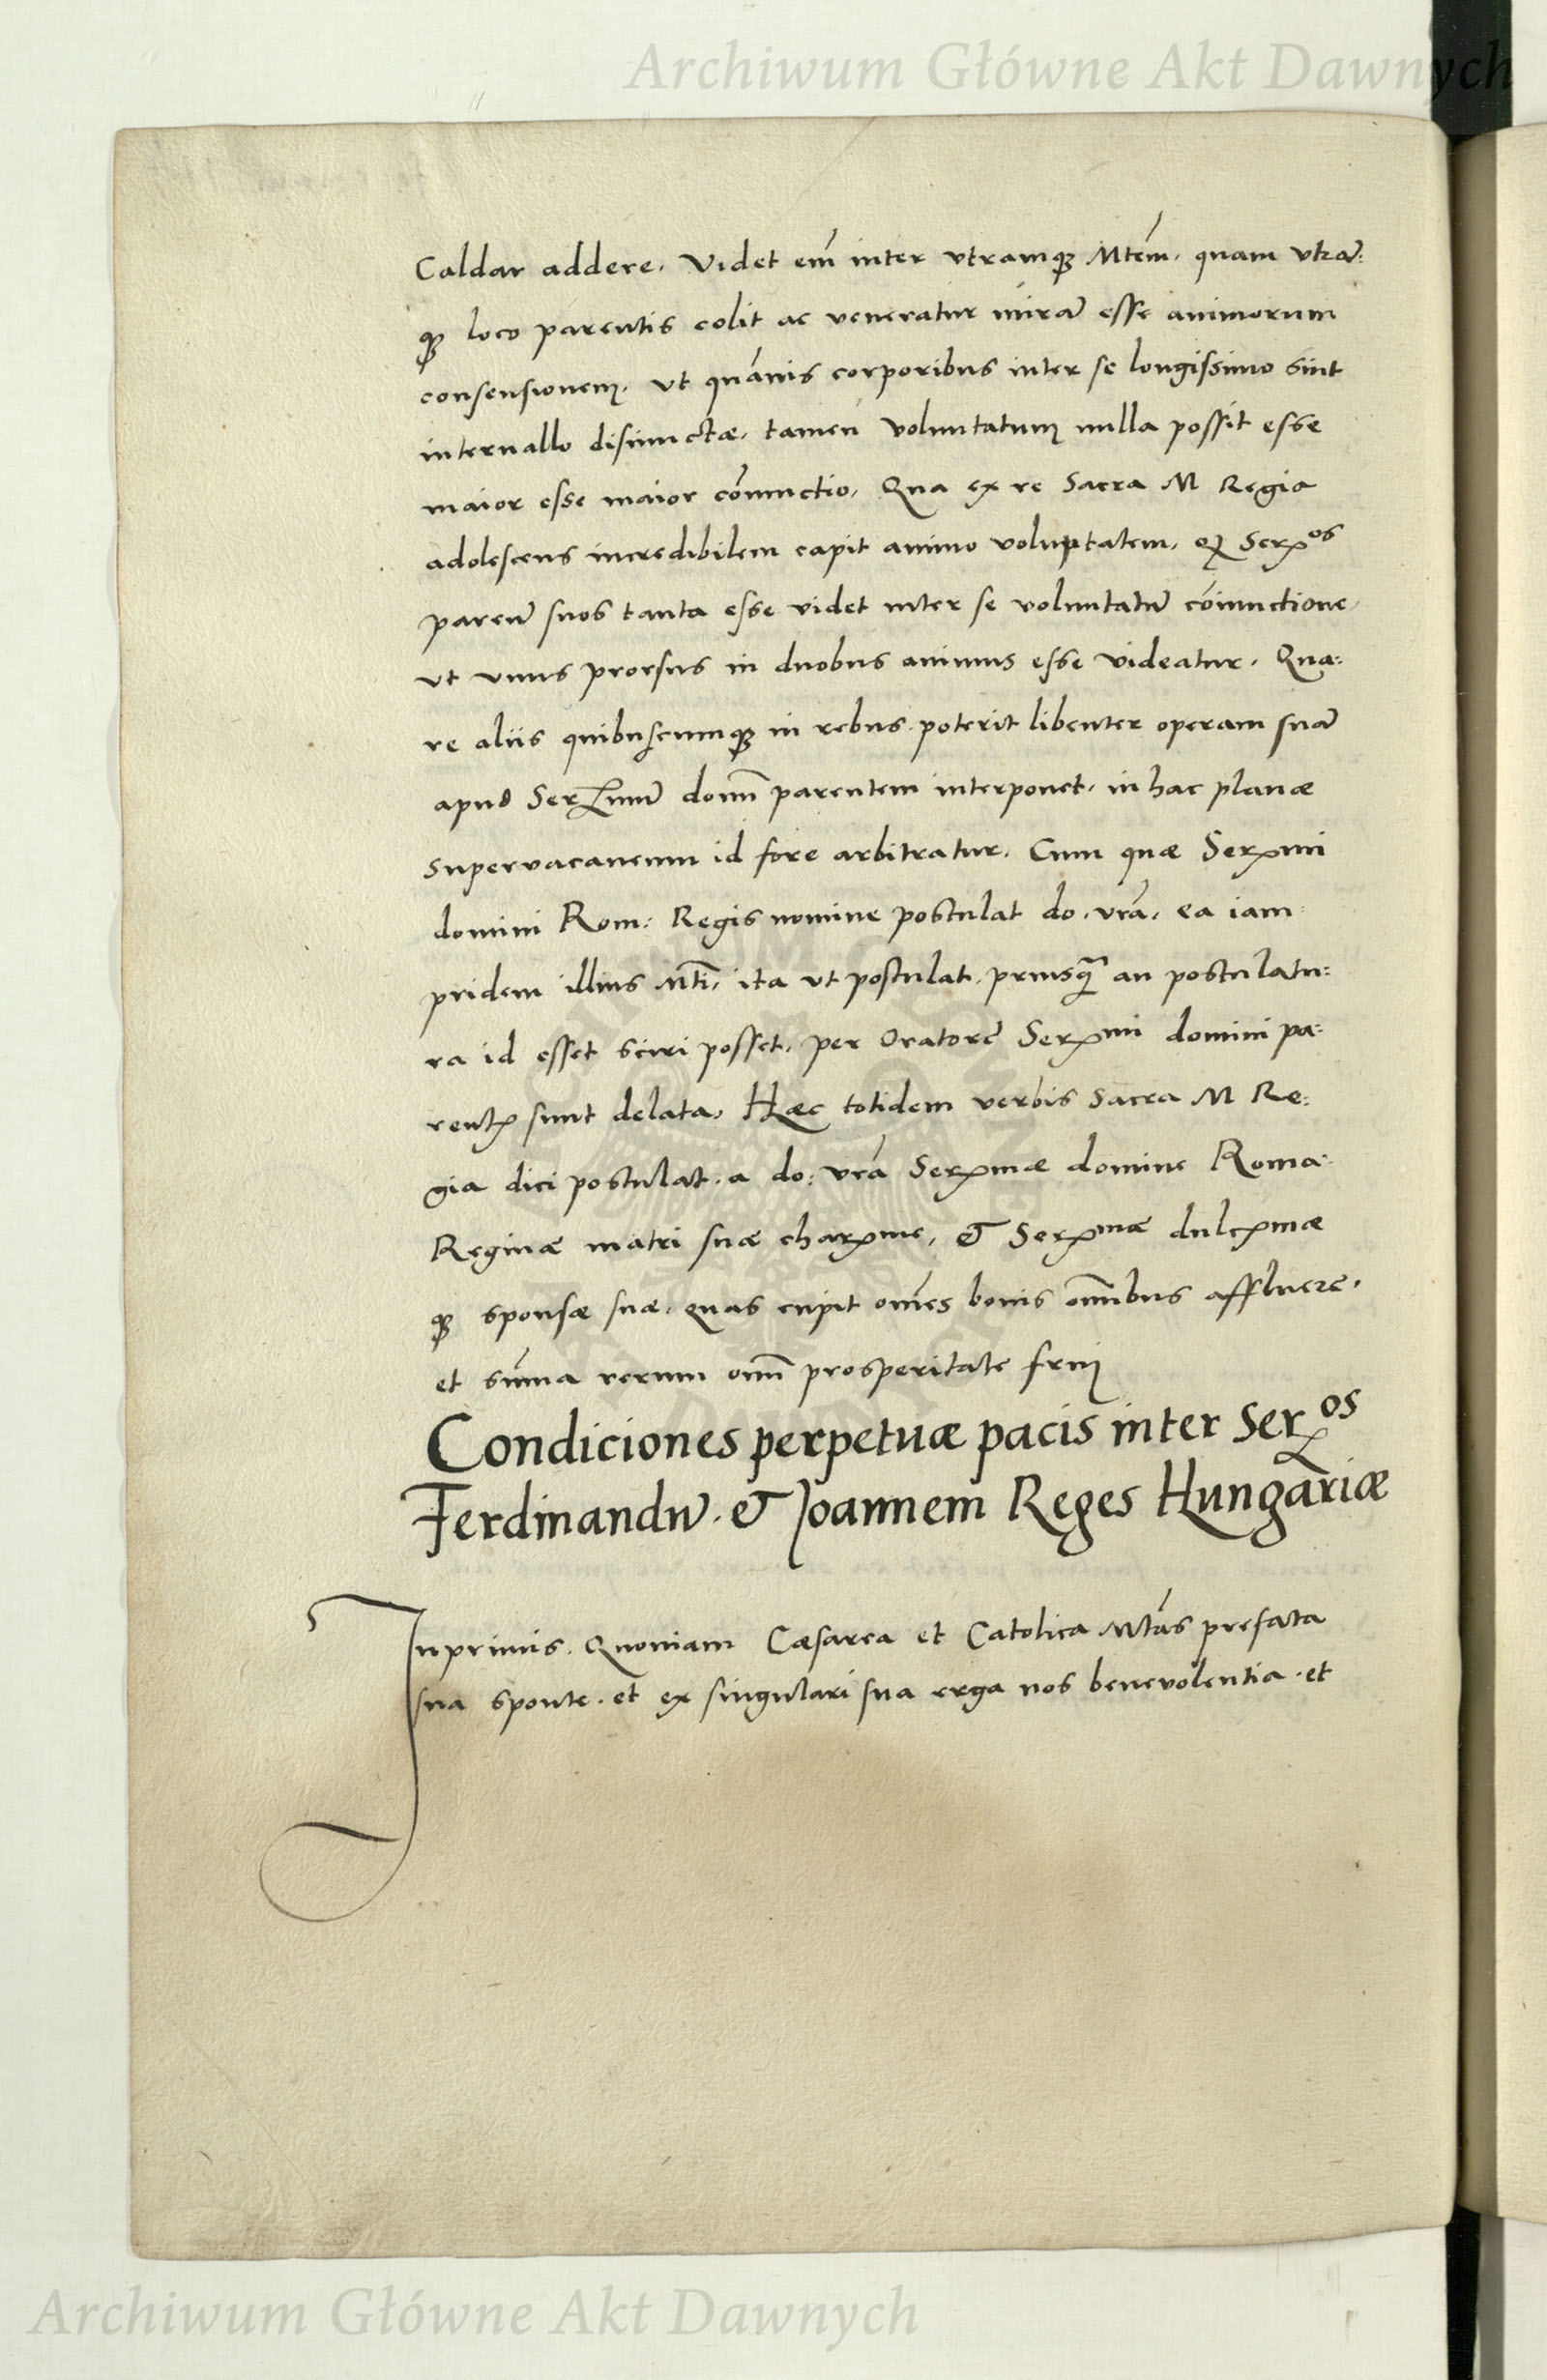 Archiwum Główne Akt Dawnych
Caldar addere. Videt em̄ inter utramqꝫ Mtem̄. quam utrā:
qꝫ loco parentis colit ac veneratur mirā esse animorum
consensionem. ut quāuis corporibus inter se longissimo sint
interuallo disiunctæ. tamen voluntatum nulla possit esse
maior esse maior cōiunctio. Qua ex re Sacra M Regia
adolescens incredibilem capit animo voluptatem. qꝫ Seros
paren̄ suos tanta esse videt inter se voluntatū cōiunctione.
ut unus prorsus in duobus animus esse videatur. Qua:
re aliis quibuscumqꝫ in rebus poterit libenter operam suā
apud Sermū domn̄ parentem interponet. in hac planæ
supervacaneum id fore arbitratur. Cum quæ Sermi
domini Rom: Regis nomine postulat do. vrā. ea iam
pridem illius Mti. ita ut postulat. priusq̄ an postulatu:
ra id esset sciri posset. per Oratorē Sermi domini pa:
rent sunt delata. Hæc totidem verbis Sacra M Re:
gia dici postulat. a do: vrā Sermæ domine Roma:
Reginæ matri suæ charme. & Sermæ dulcmæ
qꝫ sponsæ suæ. quas cupit om̄es bonis om̄ibus affluere.
et sūma rerum om̄ prosperitate frui
Condiciones perpetuæ pacis inter Ser.os
Ferdinandū. & Joannem Reges Hungariæ
Inprimis. Quoniam Cæsarea et Catolica Mtās prefata
sua sponte. et ex singulari sua erga nos benevolentia. et
Archiwum Główne Akt Dawnych